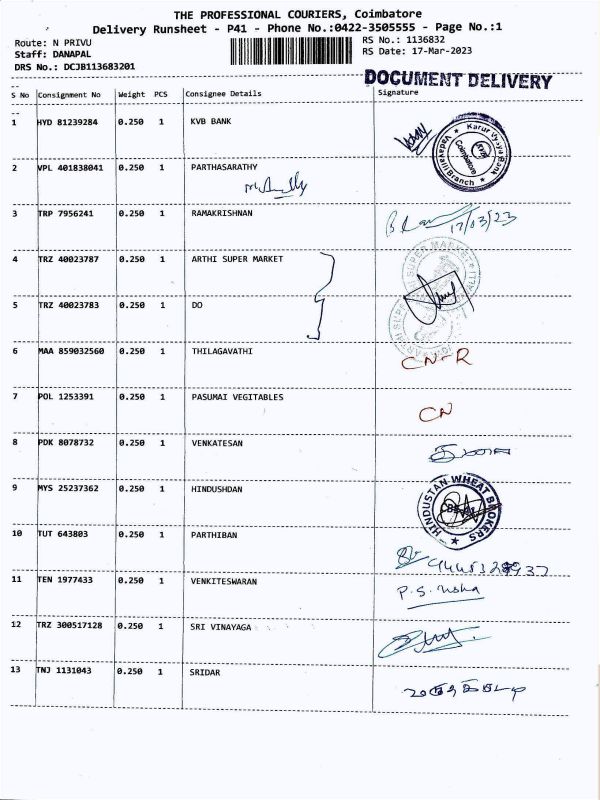 THE PROFESSIONAL COURIERS, Coimbatore
Delivery Runsheet - P41 - Phone No.:0422-3505555 - Page No.:1
Route: N PRIVU
RS No.: 1136832
Staff: DANAPAL
RS Date: 17-Mar-2023
DRS No.: DCJB113683201
DOCUMENT DELIVERY
S No Consignment No Weight PCS Consignee Details Signature
1 HYD 81239284 0.250 1 KVB BANK
Karur Vysya Bank
Coimbatore
Vadavalli Branch
2 VPL 401838041 0.250 1 PARTHASARATHY
3 TRP 7956241 0.250 1 RAMAKRISHNAN
17/03/23
4 TRZ 40023787 0.250 1 ARTHI SUPER MARKET
SUPER MARKET
5 TRZ 40023783 0.250 1 DO
6 MAA 859032560 0.250 1 THILAGAVATHI
CN-R
7 POL 1253391 0.250 1 PASUMAI VEGITABLES
CN
8 PDK 8078732 0.250 1 VENKATESAN
9 MYS 25237362 0.250 1 HINDUSHDAN
HINDUSTAN WHEAT BROKERS
10 TUT 643803 0.250 1 PARTHIBAN
11 TEN 1977433 0.250 1 VENKITESWARAN
P.S. Usha
12 TRZ 300517128 0.250 1 SRI VINAYAGA
13 TNJ 1131043 0.250 1 SRIDAR